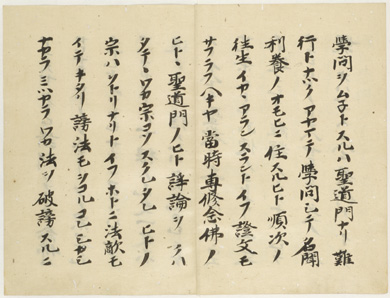 學問ヲムネトスルハ聖道門ナリ難
行トナツクアヤマテ學問シテ名聞
利養ノオモヒニ住スルヒト順次ノ
往生イカヽアランスラントイフ證文モ
サフラフヘキヤ當時専修念佛ノ
ヒトヽ聖道門ノヒト諍論ヲクハ
タテヽワカ宗コソスクレタレヒトノ
宗ハヲトリナリトイフホトニ法敵モ
イテキタリ謗法モヲコルコレシカシ
ナカラミツカラワカ法ヲ破謗スルニ